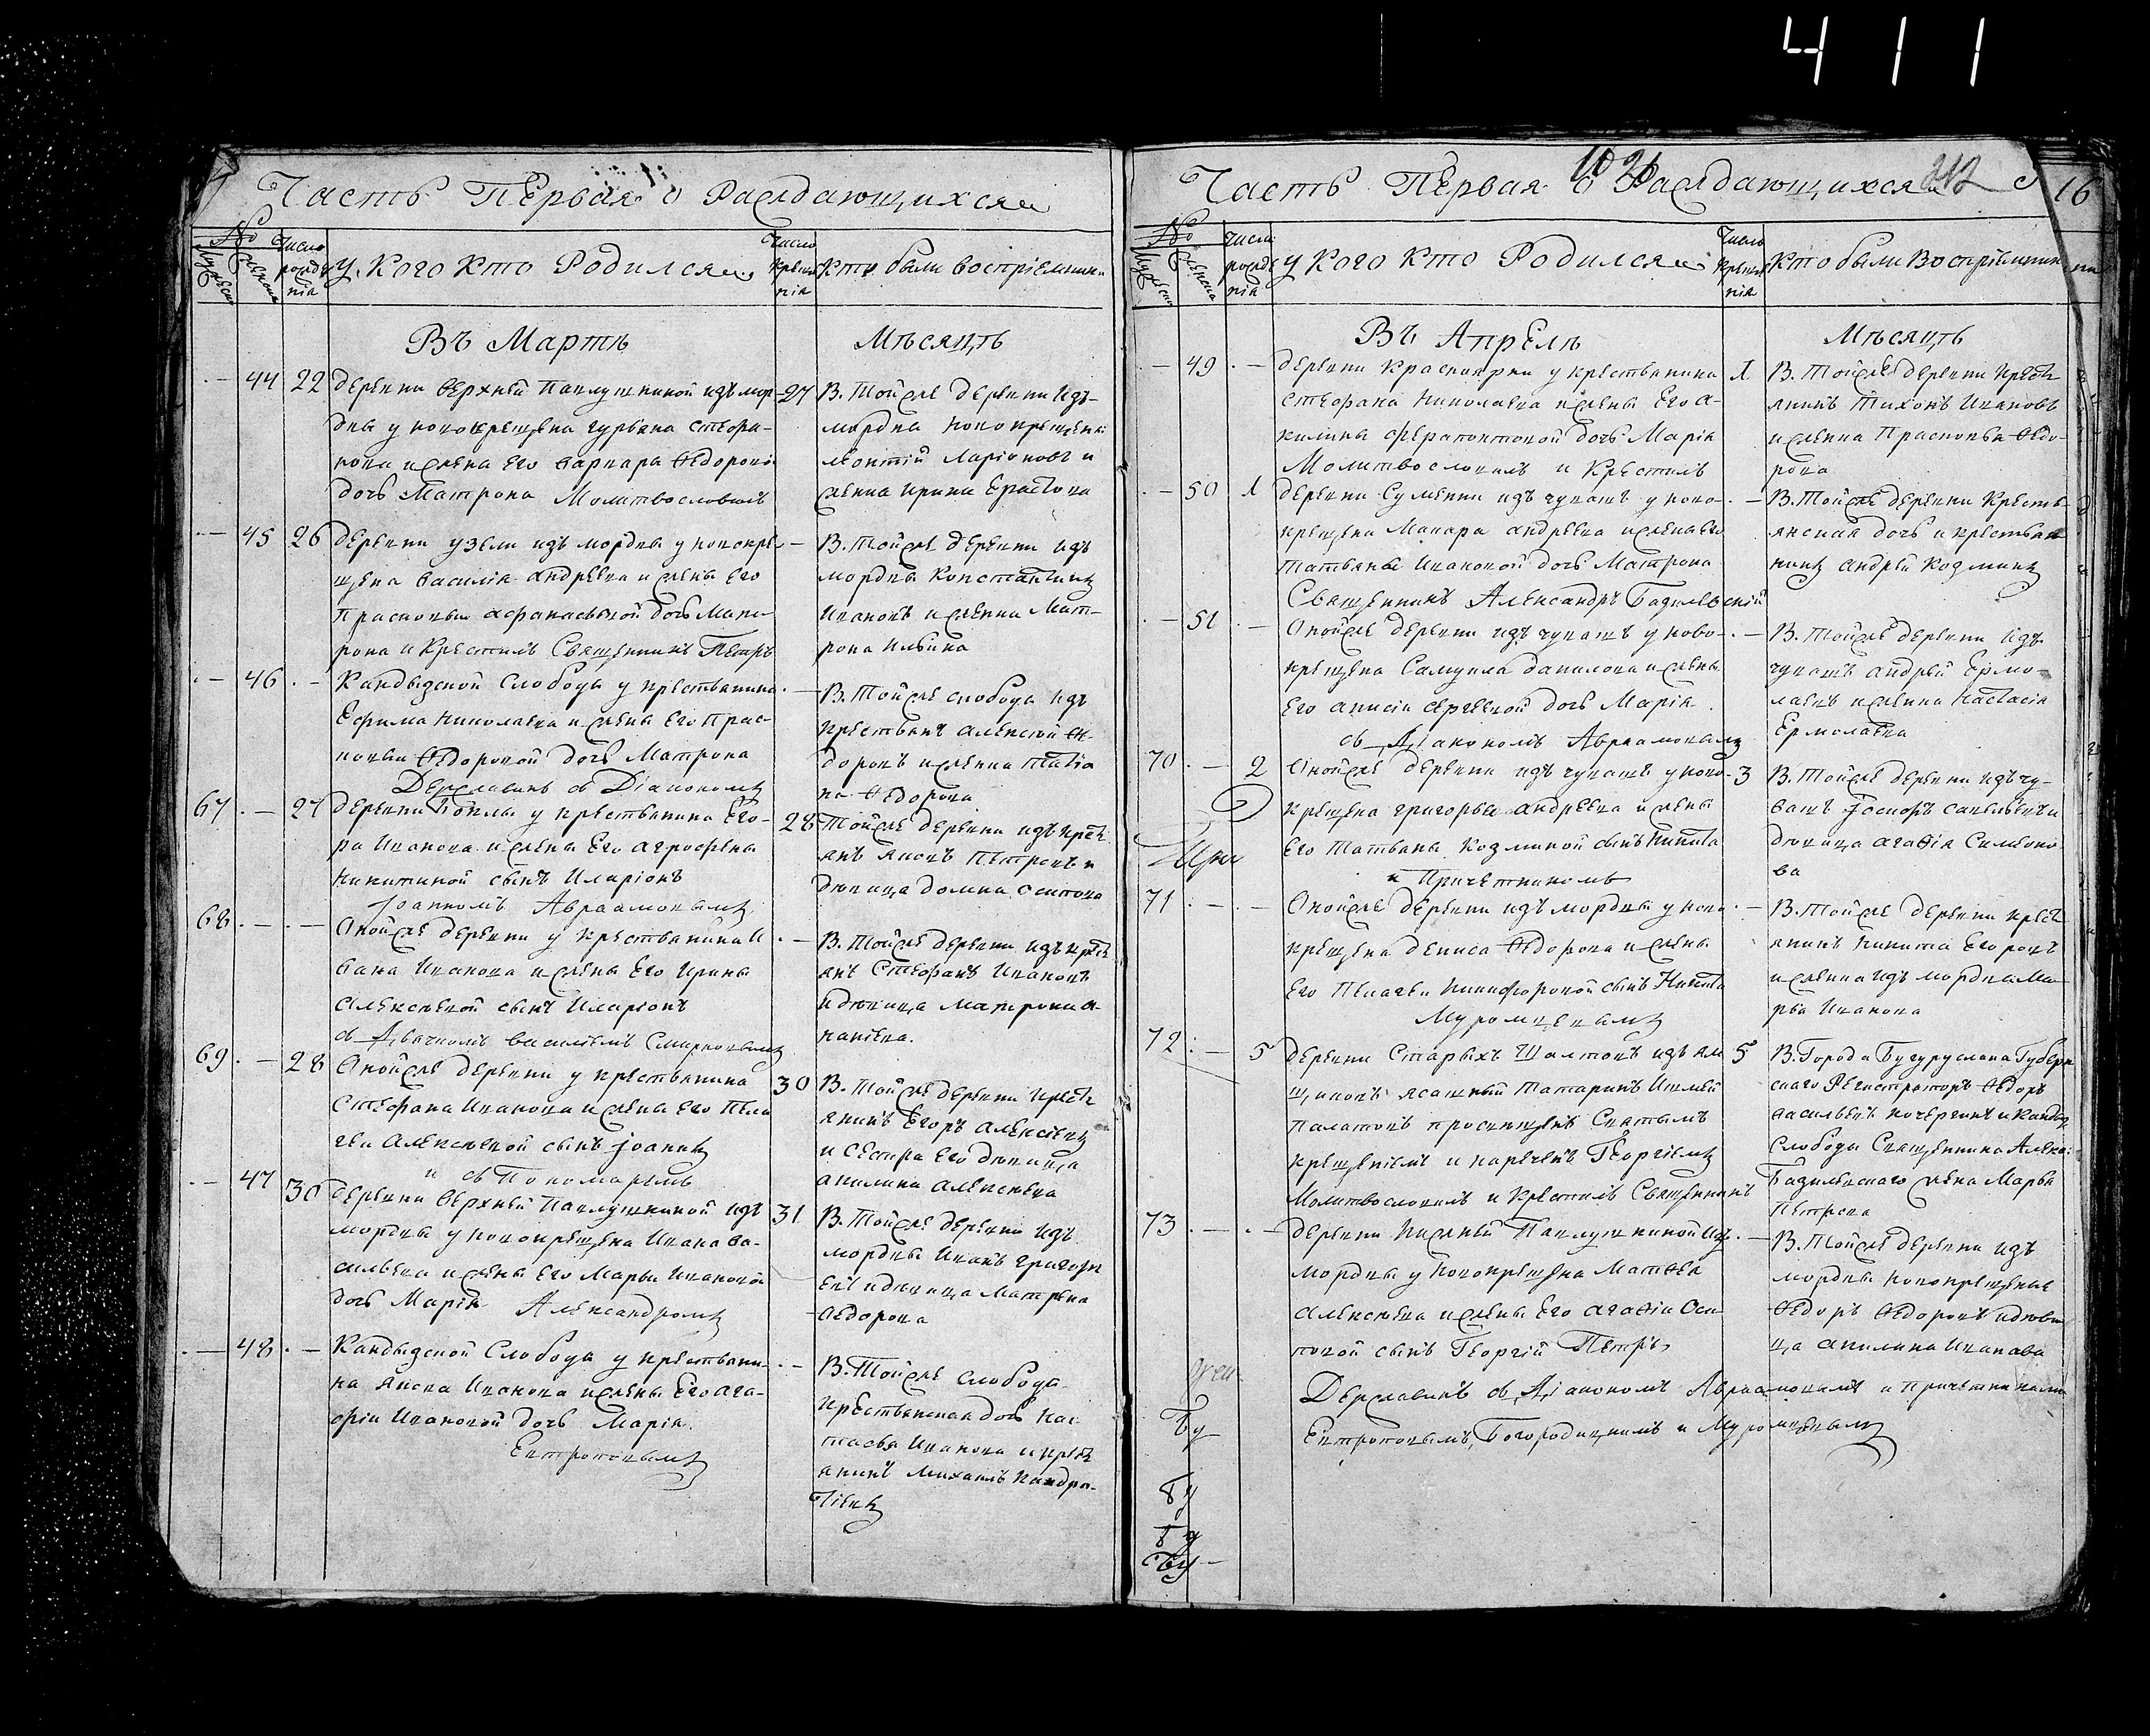 411
Часть Первая о Раждающихся
№
Мужеска
Женска
Число рожде нія
У Кого Кто Родился
Число креще нія
Кто были воспріемники
Въ Мартѣ Мѣсяцѣ
44 22 деревни верхней Павлушкиной изъ мор-
двы у новокрещена гурьяна стефа-
нова и жены его варвары Ѳедоровой
дочь Матрона Молитвословилъ
27 В. Тойже деревни изъ
мордвы новокрещенъ
леонтій Ларіоновъ и
женка ирина Ерастова
45 26 деревни узели изъ мордвы у новокре-
щена василія андреева и жены его
Прасковьи афанасьевой дочь Матро-
рона и Крестилъ Священникъ Петръ
В. Тойже деревни изъ
мордвы Константинъ
Ивановъ и женка Мат-
рона Ильина
46 Кандызской Слободы у крестьянина
Ефима Николаева и жены его Прас-
ковьи Ѳедоровой дочь Матрона
Державинъ съ Діакономъ
В. Тойже слободы изъ
крестьянъ алексей Ѳе-
доровъ и женка
на Ѳедорова
67 27 деревни у крестьянина Его-
ра Иванова и жены Его агрофены
Никитиной сынъ Иларіонъ
Іоанномъ Авраамовымъ
28 Тойже деревни изъ крест
янъ яковъ Петровъ и
девица домна осипова
68 Оной же деревни у крестьянина И
вана Иванова и жены Его Ирины
алексеевой сынъ Иларіонъ
съ Дьячкомъ василіемъ Смирновымъ
В. Тойже деревни изъ крест
янъ Стефанъ Ивановъ
и девица матрона а-
наніева.
69 28 Оной же деревни у крестьянина
Стефана Иванова и жены Его Пела
геи алексеевой сынъ Іоаннъ
и съ Пономаремъ
30 В. Тойже деревни крест
янинъ Егоръ алексіевъ
и сестра Его девица
акилина алексеева
47 30 деревни верхней Павлушкиной изъ
мордвы у новокрещена Ивана ва-
сильева и жены Его Марьи Ивановой
дочь Марія Александромъ
31 В. Тойже деревни изъ
мордвы Иванъ григорь
евъ и девица Матрена
Ѳедорова
48 Кандызской Слободы у крестьяни-
на якова Иванова и жены Его ага-
фіи Ивановой дочь Марія.
Евтроповымъ
В. Тойже слободы
крестьянская дочь Нас
тасья Иванова и крест
янинъ Михаилъ
Часть Первая о Раждающихся
16
№
Мужеска
Женска
Число рожде нія
У Кого Кто Родился
Число креще нія
Кто были Воспріемники
Въ Апрелѣ Мѣсяцѣ
49 деревни Красноярки у крестьянина
Стефана Николаева и жены Его а-
килины ферапонтовой дочь Марія
Молитвословилъ и Крестилъ
1 В. Тойже деревни крест
янинъ Тихонъ Ивановъ
и женка Прасковья Ѳедо-
рова
50 1 деревни Суменки изъ чувашъ у ново-
крещена Макара андреева и жены Его
татьяны Ивановой дочь Матрона
Священникъ Александръ Базилевскій
В. Тойже деревни Кресть-
янская дочь и крестьян
нинъ андрей козминъ
51 Оной же деревни изъ чувашъ у ново-
крещена Самуила данилова и жены
Его анисіи сергеевой дочь Марія.
съ Діакономъ Авраамовымъ
В. Тойже деревни изъ
чувашъ андрей Ермо-
лаевъ и женка Настасія
Ермолаева
70 2 Оной же деревни изъ чувашъ у ново-
крещена григорья андреева и жены
Его Татьяны козминой сынъ Никита
и Причетникомъ
3 В. Тойже деревни изъ чу-
вашъ Іосифъ савельевъ и
девица агафія Симеоно-
ва
71 Оной же деревни изъ мордвы у ново
крещена дениса Ѳедорова и жены
Его Пелагеи Никифоровой сынъ Никита
Муромцевымъ
В. Тойже деревни крест
янинъ Никита Егоровъ
и женка изъ мордвы Ма
рья Иванова
72 5 деревни Старыхъ Шалтовъ изъ ям
щиковъ ясашный татаринъ Ишмей
Палатовъ просвещенъ Святымъ
крещеніемъ и нареченъ Георгіемъ
Молитвословилъ и Крестилъ Священникъ
5 В. Города Бугуруслана Губерн
скаго Регистраторъ Ѳедоръ
васильевъ кочергинъ и Кандыз
Слободы Священника Алекса:
Базилевскаго жена Марья
Петрова
73 деревни Нижней Павлушкиной изъ
мордвы у Новокрещена Матвея
алексеева и жены Его агафіи Оси
повой сынъ Георгій Петръ
Державинъ съ Діакономъ Авраамовымъ и Причетниками
Евтроповымъ, Богородицкимъ и Муромцевымъ
В. Тойже деревни изъ
мордвы новокрещеные
Ѳедоръ Ѳедоровъ и деви
ца акилина Иванова
Бу
Бу
Бу